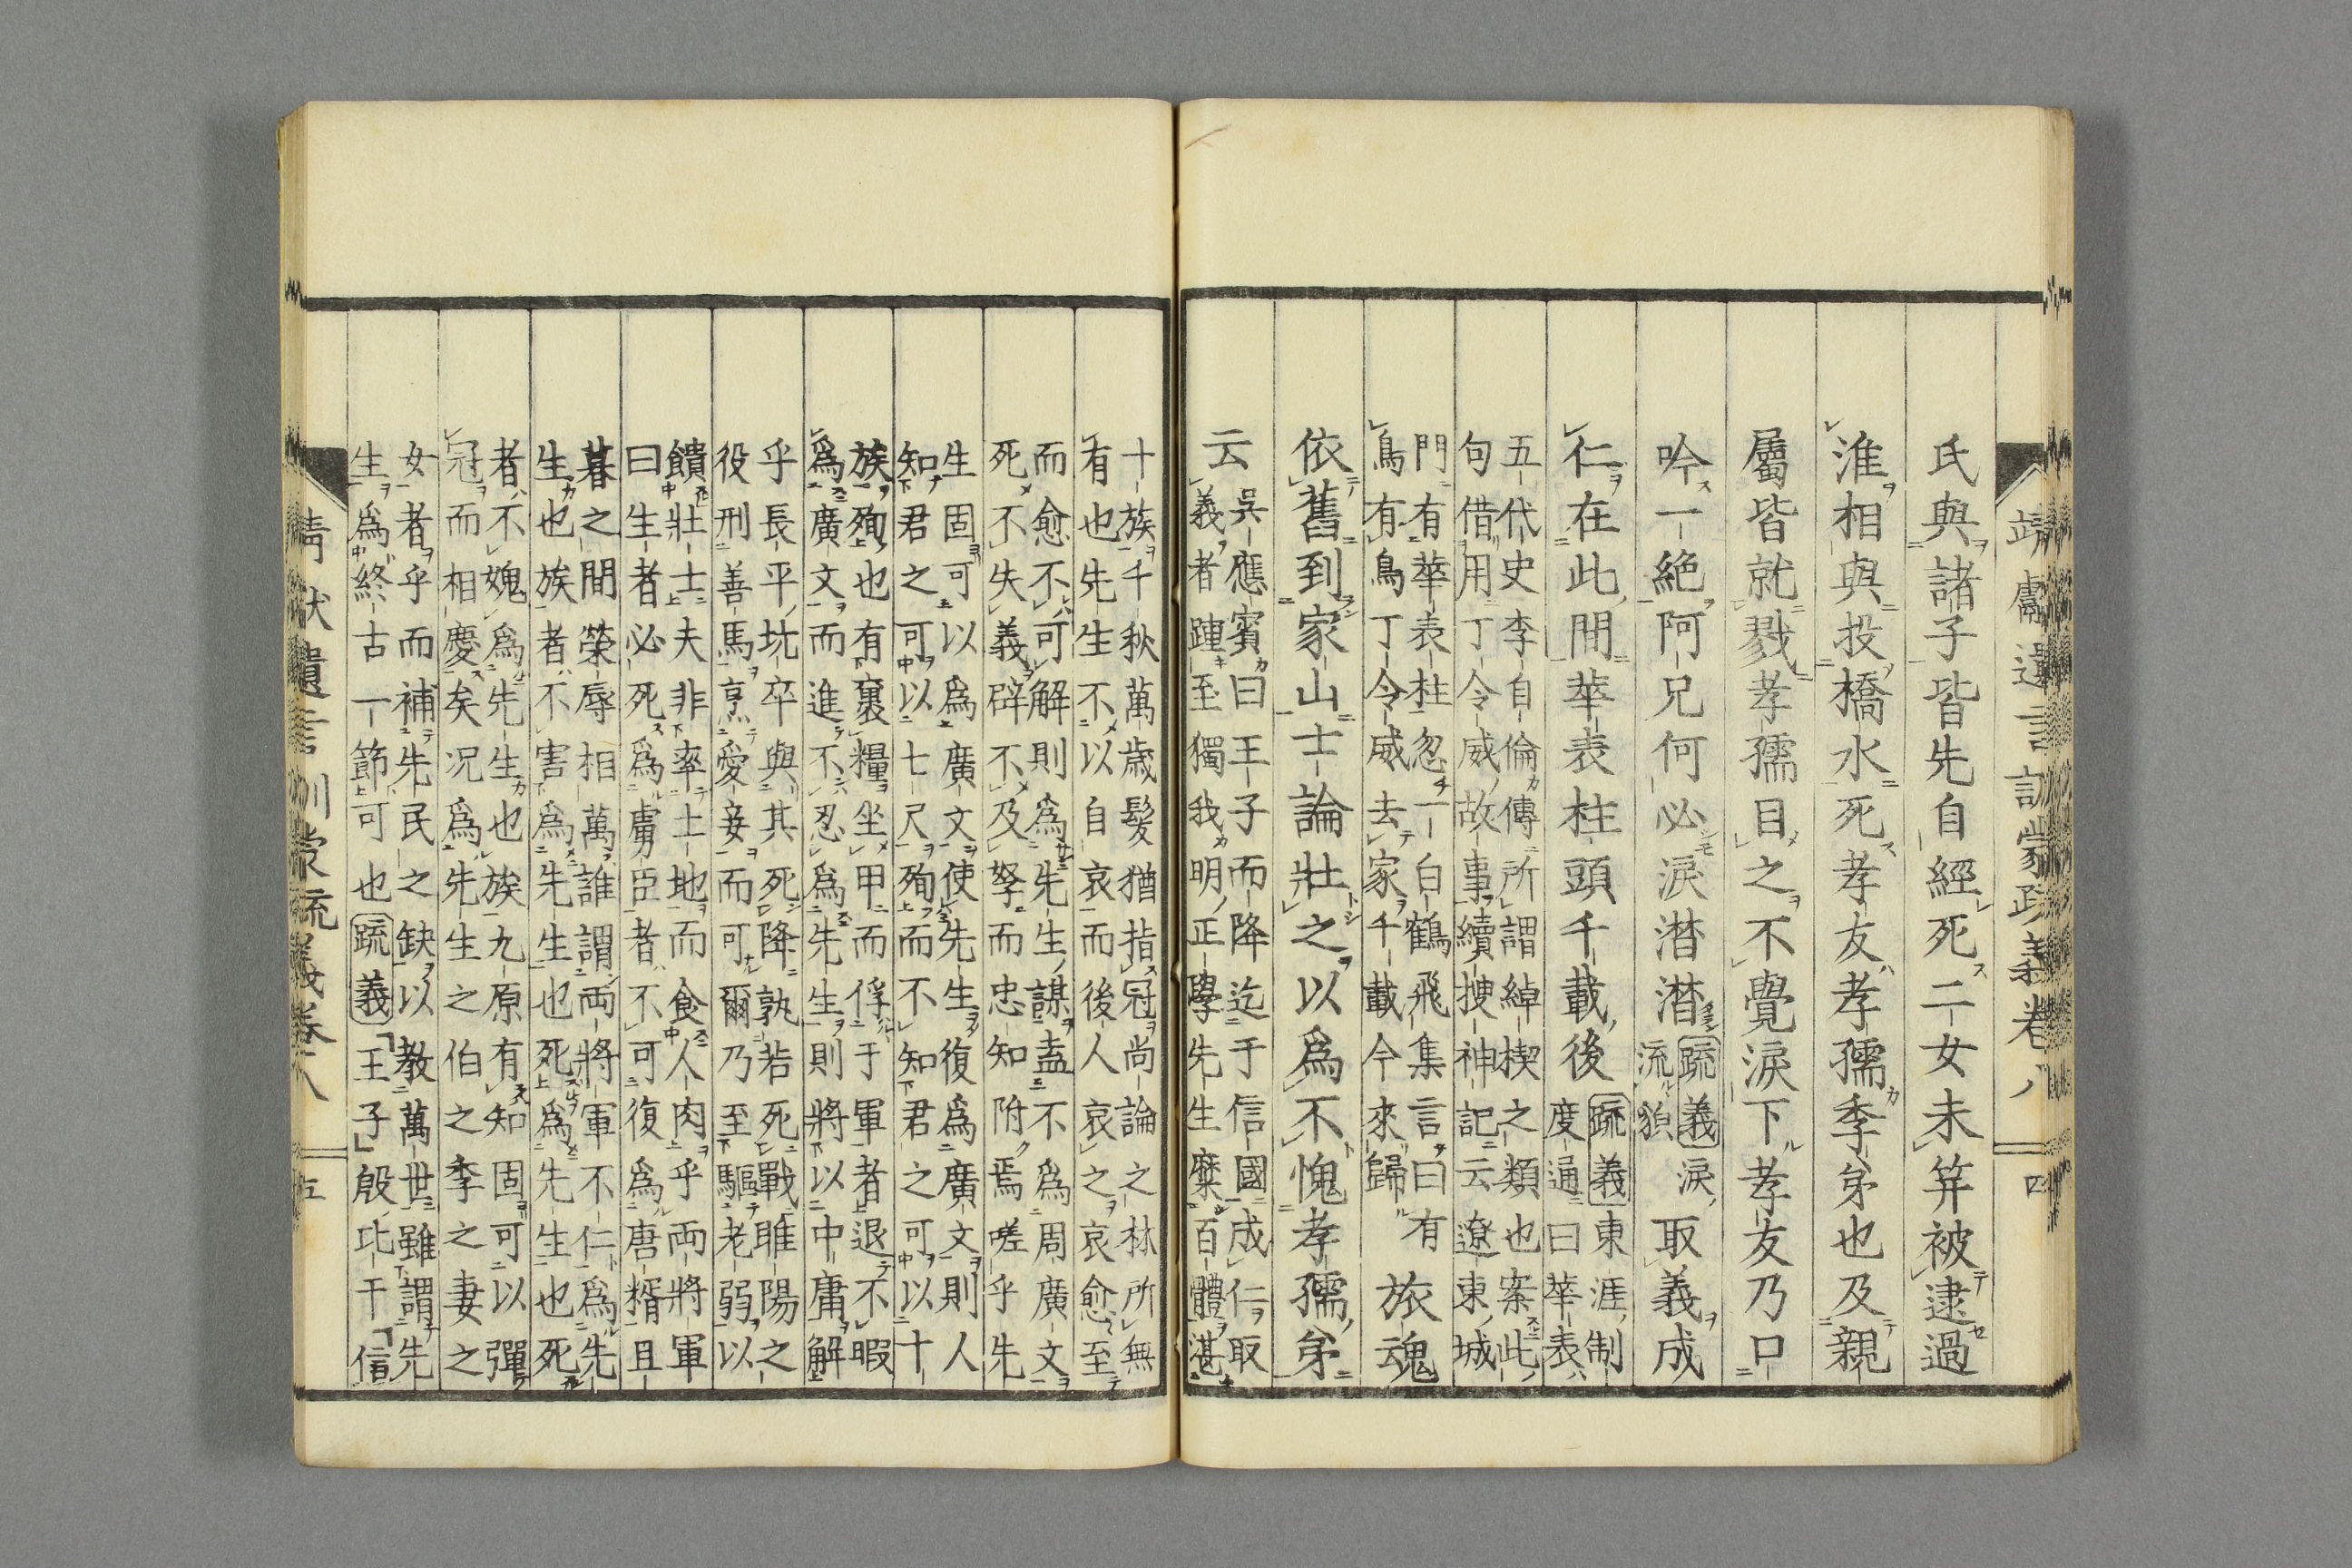 靖獻遺言訓蒙疏義卷八 四
氏與諸子皆先自經死二女未笄被逮過
淮相與投橋水死孝友孝孺季弟也及親
屬皆就戮孝孺目之不覺淚下孝友乃口
吟一絶阿兄何必淚潸潸
疏義淚
流貌
取義成
仁在此間華表柱頭千載後
疏義東涯制
度通曰華表
五代史李自倫傳所謂綽楔之類也案此
句借用丁令威故事續搜神記云遼東城
門有華表柱忽一白鶴飛集言曰有
鳥有鳥丁令威去家千載今來歸
旅魂
依舊到家山士論壯之以爲不愧孝孺弟
云
吳應賓曰王子而降迄于信國成仁取
義者踵至獨我明正學先生糜百體湛
十族千秋萬歲髮猶指冠尚論之林所無
有也先生不以自哀而後人哀之哀愈至
而愈不可解則爲先生謀盍不爲周廣文
死不失義辟不及孥而忠知附焉嗟乎先
生固可以爲廣文使先生復爲廣文則人
知君之可以七尺殉而不知君之可以十
族殉也有裹糧坐甲而俘于軍者退不暇
爲廣文而進不忍爲先生則將以中庸解
乎長平坑卒與其死降孰若死戰睢陽之
役刑善馬烹愛妾而可爾乃至驅老弱以
饋壯士夫非率土地而食人肉乎兩將軍
曰生者必死爲虜臣者不可復爲唐糈且
暮之間榮辱相萬誰謂兩將軍不仁爲先
生也族者不害爲先生也死爲先生也死
者不媿爲先生也族九原有知固可以彈
冠而相慶矣況爲先生之伯之季之妻之
女者乎而補先民之缺以教萬世雖謂先
生爲終古一節可也疏義王子殷比干信
靖獻遺言訓蒙疏義卷八 五